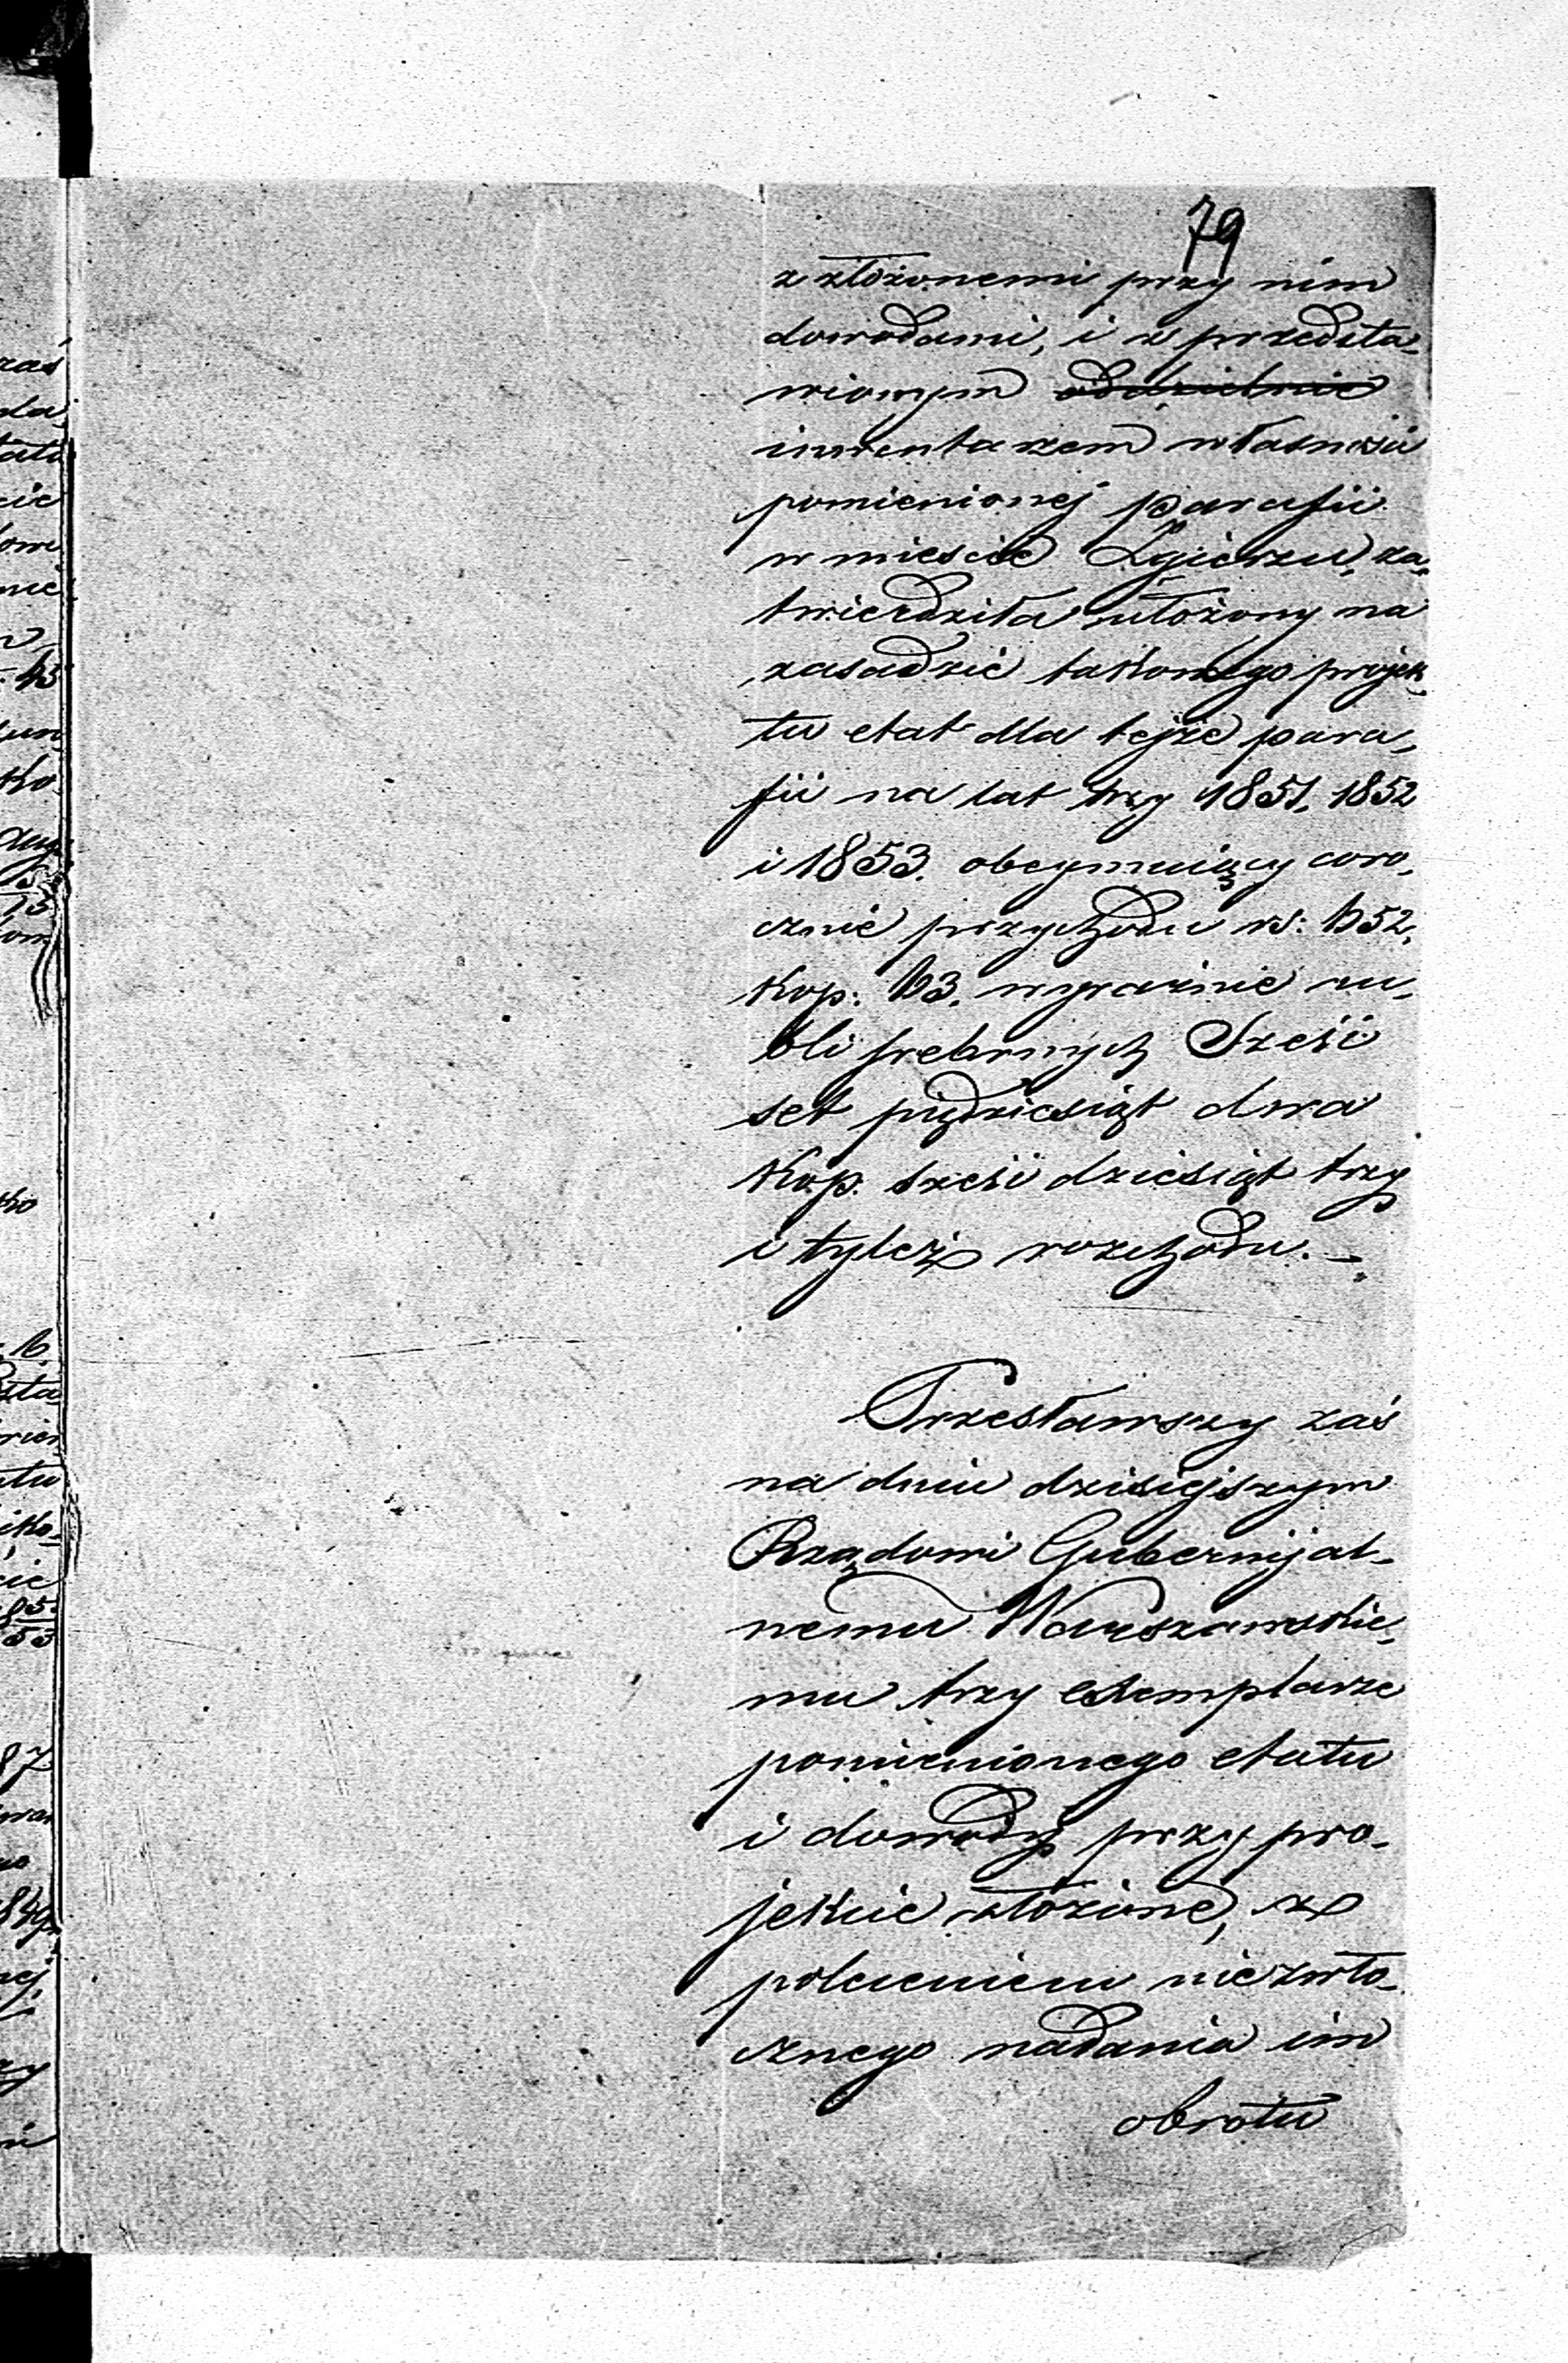 79
z złożonemi przy nim
dowodami, i z przedsta-
wionym oddzielnie
inwentarzem własności
pomienionej parafii
w mieście Zgierzu, za-
twierdziła ułożony na
zasadzie takowego projek-
tu etat dla tejże para-
fii na lat trzy 1851, 1852
i 1853. obeymuiący coro-
cznie przychodu rs: 652,
kop: 63. wyraźnie ru-
bli srebrnych Sześć
set piędziesiąt dwa
kop. sześć dziesiąt trzy
i tyleż rozchodu. –
Przesławszy zaś
na dniu dzisiejszym
Rządowi Gubernijal-
nemu Warszawskie-
mu trzy exemplarze
pomienionego etatu
i dowody przy pro-
jekcie złożone, z
poleceniem niezwło-
cznego nadania im
obrotu